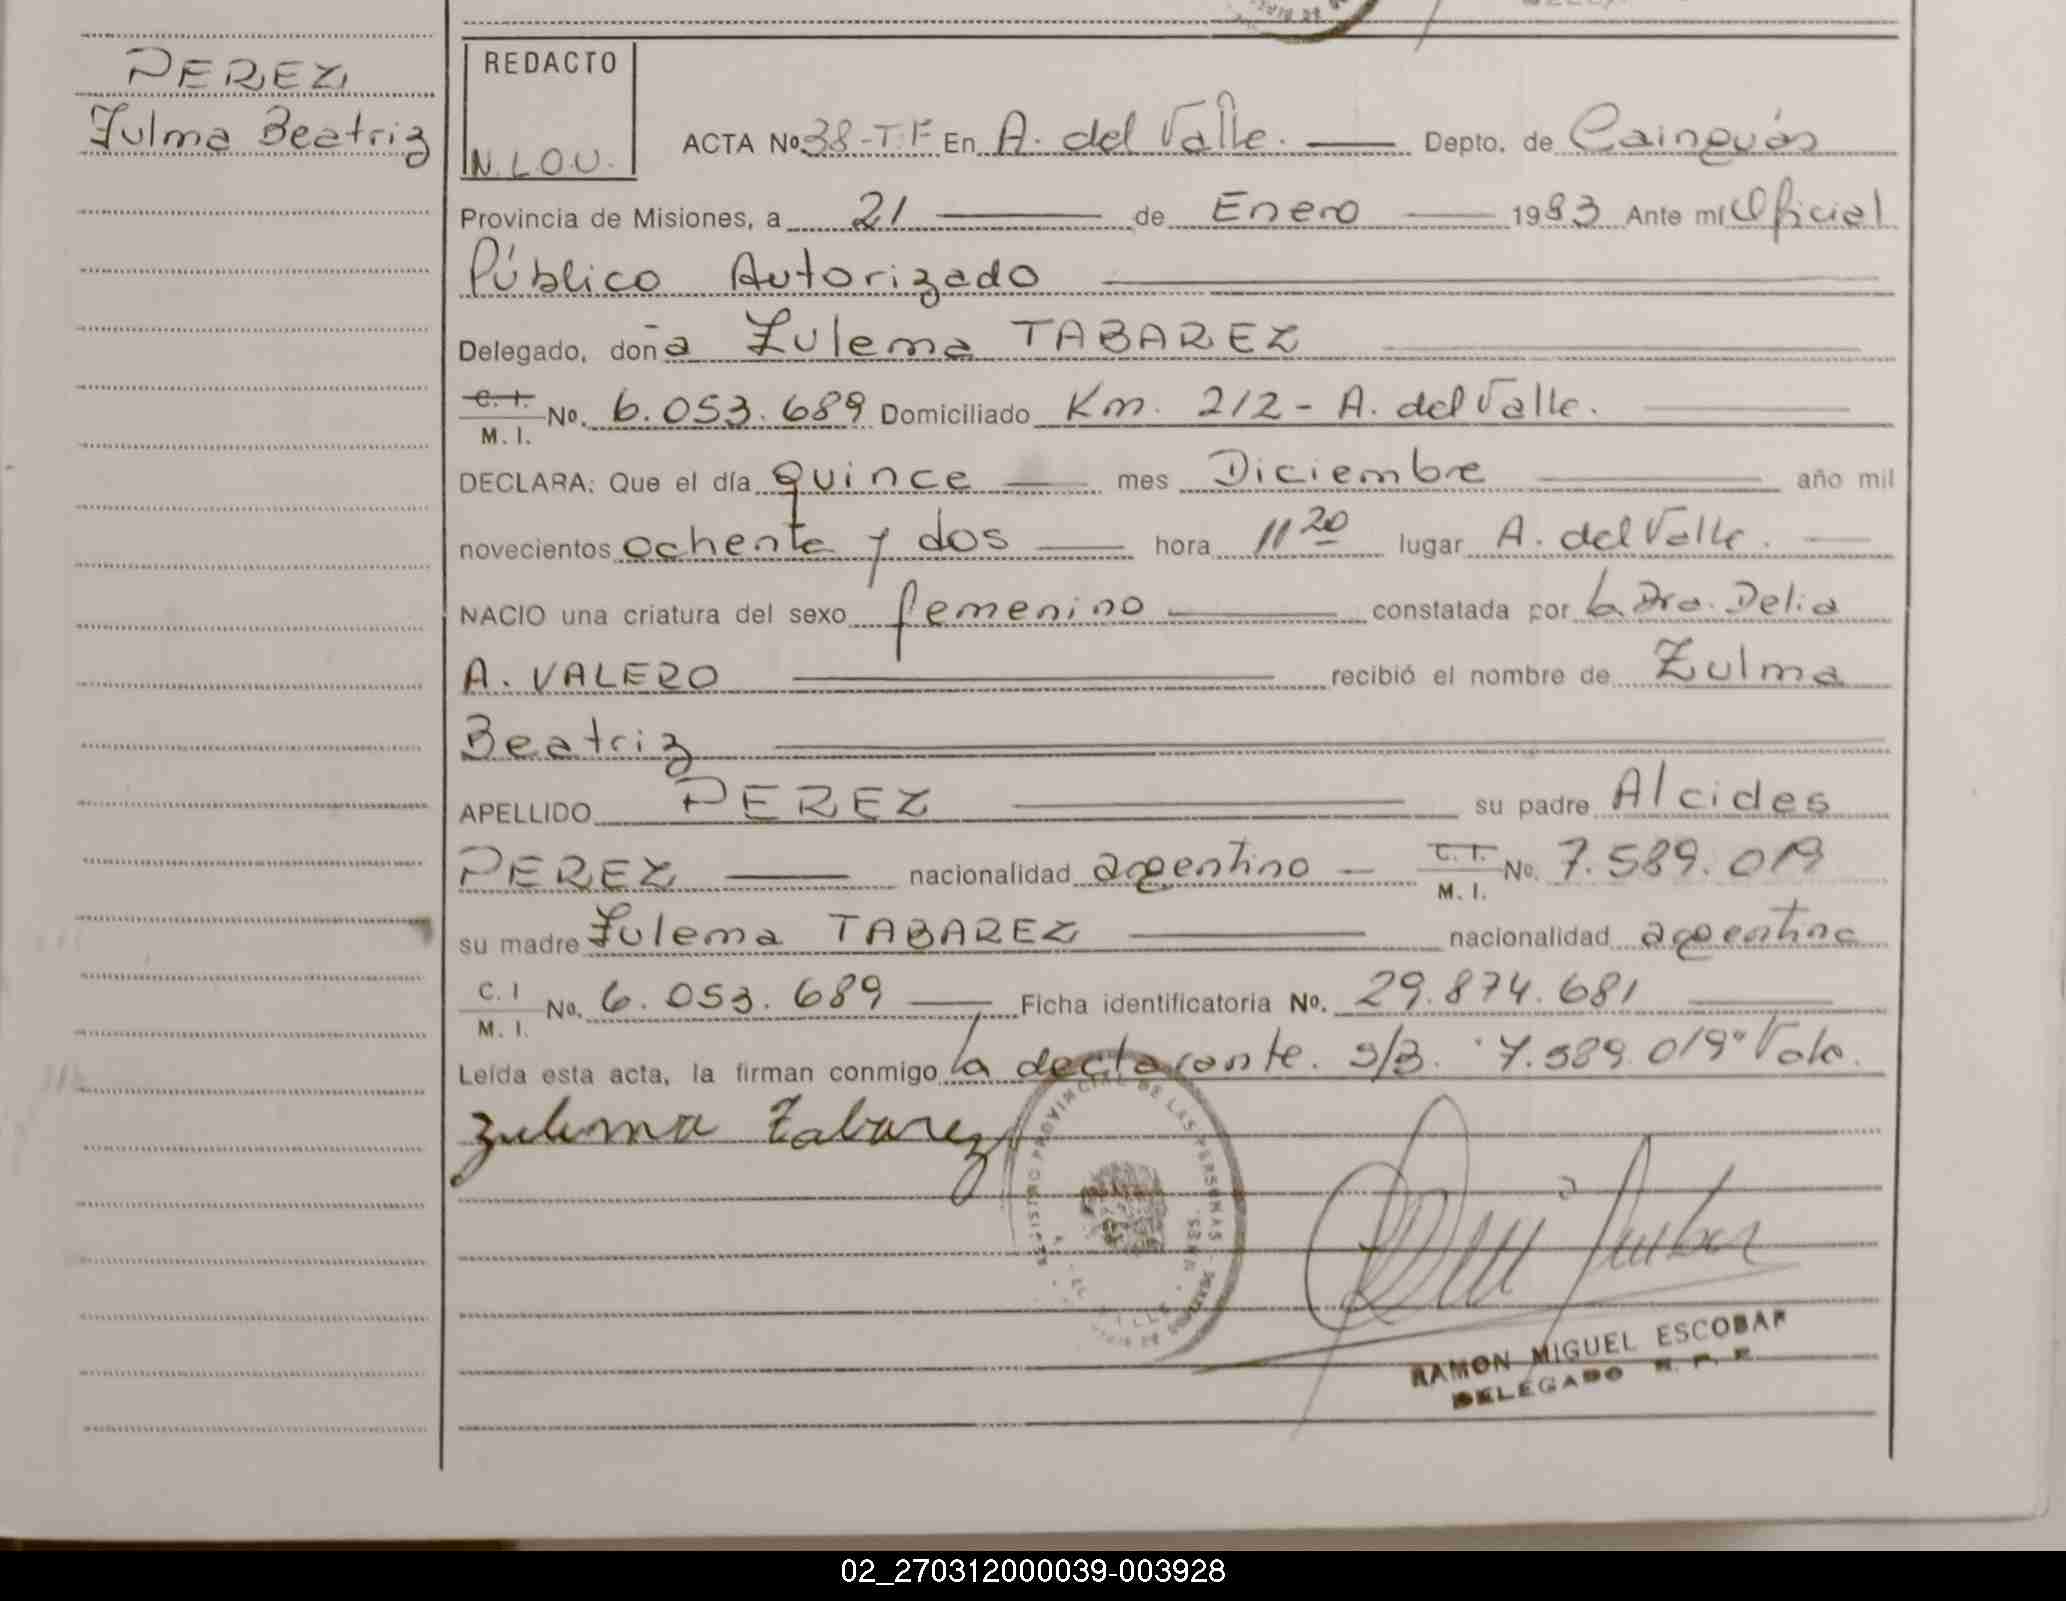 PEREZ
Zulma Beatriz
REDACTO
N.L.O.U.
ACTA No 38-T.F En A. del Valle. Depto. de Cainguás
Provincia de Misiones, a 21 de Enero 1983 Ante mí Oficial
Público Autorizado
Delegado, doña Zulema TABAREZ
C.I. M.I. No. 6.053.689 Domiciliado Km. 212 - A. del Valle.
DECLARA: Que el día quince mes Diciembre año mil
novecientos ochenta y dos hora 11 20 lugar A. del Valle.
NACIO una criatura del sexo femenino constatada por la Dra. Delia
A. VALERO recibió el nombre de Zulma
Beatriz
APELLIDO PEREZ su padre Alcides
PEREZ nacionalidad argentino C.I. M.I. No. 7.589.019
su madre Zulema TABAREZ nacionalidad argentina
C.I M.I. No. 6.053.689 Ficha identificatoria No. 29.874.681
Leída esta acta, la firman conmigo la declarante. S/B. "7.589.019" Vale.
Zulema Tabarez
PROVINCIAL DE LAS PERSONAS
RAMON MIGUEL ESCOBAR
DELEGADO R. P. P.
02_270312000039-003928